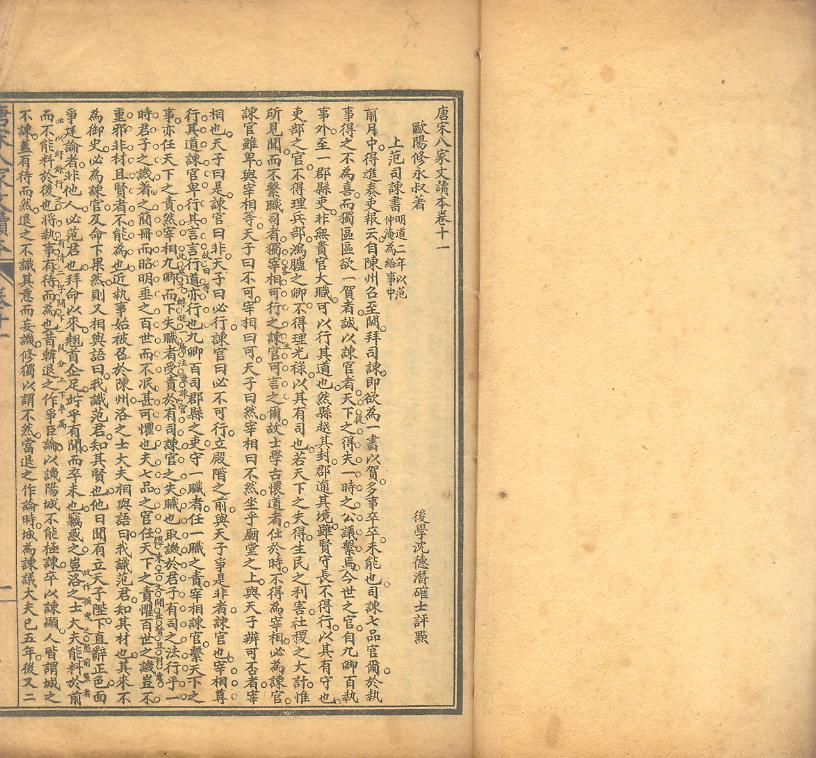 唐宋八家文讀本卷十一
歐陽修永叔著
後學沈德潛確士評點
上范司諫書
明道二年以范
仲淹為給事中
前月中得進奏吏報云自陳州召至闕拜司諫即欲為一書以賀多事卒卒未能也司諫七品官爾於執
事得之不為喜而獨區區欲一賀者誠以諫官者天下之得失一時之公議繫焉今世之官自九卿百執
事外至一郡縣吏非無貴官大職可以行其道也然縣越其封郡逾其境雖賢守長不得行以其有守也
吏部之官不得理兵部鴻臚之卿不得理光祿以其有司也若天下之失得生民之利害社稷之大計惟
所見聞而不繫職司者獨宰相可行之諫官可言之爾故士學古懷道者仕於時不得為宰相必為諫官
諫官雖卑與宰相等天子曰不可宰相曰可天子曰然宰相曰不然坐乎廟堂之上與天子辨可否者宰
相也天子曰是諫官曰非天子曰必行諫官曰必不可行立殿階之前與天子爭是非者諫官也宰相尊
行其道諫官卑行其言言行道亦行也九卿百司郡縣之吏守一職者任一職之責宰相諫官繫天下之
事亦任天下之責然宰相九卿而下失職者受責於有司諫官之失職也取譏於君子有司之法行乎一
時君子之譏著之簡冊而昭明垂之百世而不泯甚可懼也夫七品之官任天下之責懼百世之譏豈不
重邪非材且賢者不能為也近執事始被召於陳州洛之士大夫相與語曰我識范君知其材也其來不
為御史必為諫官及命下果然則又相與語曰我識范君知其賢也他日聞有立天子陛下直辭正色面
爭廷論者非他人必范君也拜命以來翹首企足竚乎有聞而卒未也竊惑之豈洛之士大夫能料於前
而不能料於後也將執事有待而為也昔韓退之作爭臣論以譏陽城不能極諫卒以諫顯人皆謂城之
不諫蓋有待而然退之不識其意而妄譏修獨以謂不然當退之作論時城為諫議大夫已五年後又二
唐宋八家文讀本
卷十一
一